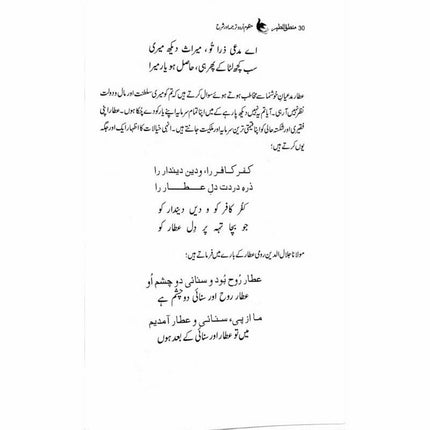 30 منطق الطیر منظوم اُردو ترجمہ اور شرح
اے مدعی ذرا تُو، میراث دیکھ میری
سب کچھ لٹا کے پھر ہی، حاصل ہو یار میرا
عطار مدعیان خوشنما سے مخاطب ہوتے ہوئے سوال کرتے ہیں کہ تم کو میری سلطنت اور مال و دولت
نظر نہیں آ رہی۔ آیا تم یہ نہیں دیکھ پا رہے کہ میں اپنا تمام سرمایہ اپنے یار پر کو دے چکا ہوں۔ عطار اپنی
فقیری اور شکستہ حالی کو اپنا قیمتی ترین سرمایہ اور ملکیت جانتے ہیں۔ انہی خیالات کا اظہار ایک اور جگہ
یوں کرتے ہیں:
کفر کافر را، و دین دیندار را
ذرہ دردت دلِ عطار را
کفر کافر کو و دیں دیندار کو
جو بچا تہہ پر دِل عطار کو
مولانا جلال الدین رومی عطار کے بارے میں فرماتے ہیں:
عطار رُوح بُود و سنائی دو چشم اُو
عطار روح اور سنائی دو چشم ہے
ما از پیء سنائی و عطار آمدیم
میں تو عطار اور سنائی کے بعد ہوں